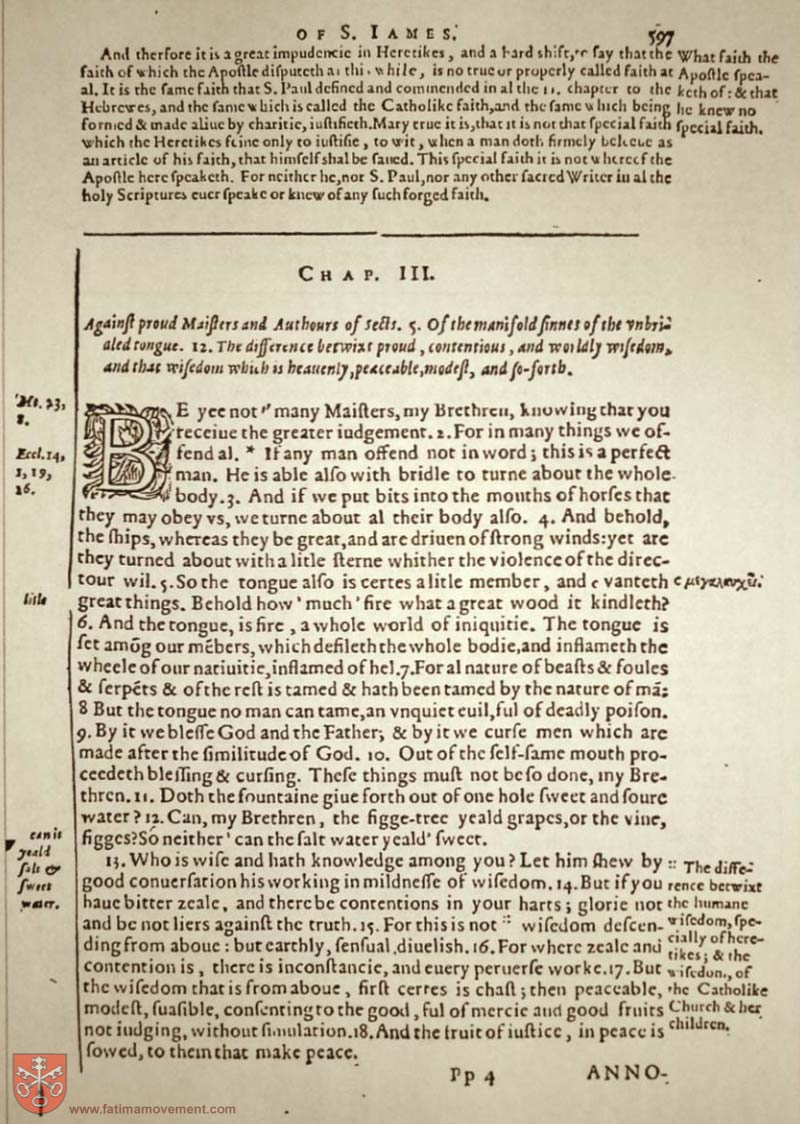 OF S. IAMES. 597
And therfore it is a great impudencie in Heretikes, and a hard shift, to say that the
faith of which the Apostle disputeth al this while, is no true or properly called faith at
al. It is the same faith that S. Paul defined and commended in al the 11. chapter to the
Hebrewes, and the same which is called the Catholike faith, and the same which being
formed & made aliue by charitie, iustifieth. Mary true it is, that it is not that special faith
which the Heretikes feine only to iustifie, to wit, when a man doth firmely beleeue as
an article of his faith, that himself shal be saued. This special faith it is not whereof the
Apostle here speaketh. For neither he, nor S. Paul, nor any other sacred Writer in al the
holy Scriptures euer speake or knew of any such forged faith.
What faith the
Apostle spea-
keth of: & that
he knew no
special faith.
CHAP. III.
Against proud Maisters and Authours of sects. 5. Of the manifold sinnes of the vnbri-
dled tongue. 12. The difference betwixt proud, contentious, and worldly wisedom,
and that wisedom which is heauenly, peaceable, modest, and so-forth.
Mt. 23,
8.
Eccl. 14,
1, 19,
16.
BE yee not " many Maisters, my Brethren, knowing that you
receiue the greater iudgement. 2. For in many things we of-
fend al. * If any man offend not in word; this is a perfect
man. He is able also with bridle to turne about the whole
body. 3. And if we put bits into the mouths of horses that
they may obey vs, we turne about al their body also. 4. And behold,
the ships, whereas they be great, and are driuen of strong winds: yet are
they turned about with a litle sterne whither the violence of the direc-
tour wil. 5. So the tongue also is certes a litle member, and c vanteth
great things. Behold how ' much ' fire what a great wood it kindleth?
6. And the tongue, is fire, a whole world of iniquitie. The tongue is
set amõg our mẽbers, which defileth the whole bodie, and inflameth the
wheele of our natiuitie, inflamed of hel. 7. For al nature of beasts & foules
& serpẽts & of the rest is tamed & hath been tamed by the nature of mã:
8 But the tongue no man can tame, an vnquiet euil, ful of deadly poison.
9. By it we blesse God and the Father; & by it we curse men which are
made after the similitude of God. 10. Out of the self-same mouth pro-
ceedeth blessing & cursing. These things must not be so done, my Bre-
thren. 11. Doth the fountaine giue forth out of one hole sweet and soure
water? 12. Can, my Brethren, the figge-tree yeald grapes, or the vine,
figges? So neither ' can the salt water yeald' sweet.
c μεγαλαυχεῖ.
litle
can it
yeald
salt &
sweet
water.
13. Who is wise and hath knowledge among you? Let him shew by
good conuersation his working in mildnesse of wisedom. 14. But if you
haue bitter zeale, and there be contentions in your harts; glorie not
and be not liers against the truth. 15. For this is not :: wisedom descen-
ding from aboue: but earthly, sensual, diuelish. 16. For where zeale and
contention is, there is inconstancie, and euery peruerse worke. 17. But
the wisedom that is from aboue, first certes is chast; then peaceable,
modest, suasible, consenting to the good, ful of mercie and good fruits
not iudging, without simulation. 18. And the fruit of iustice, in peace is
sowed, to them that make peace.
:: The diffe-
rence betwixt
the humane
wisedom, spe-
cially of here-
tikes; & the
wisedom, of
the Catholike
Church & her
children.
Pp 4 ANNO-
www.fatimamovement.com